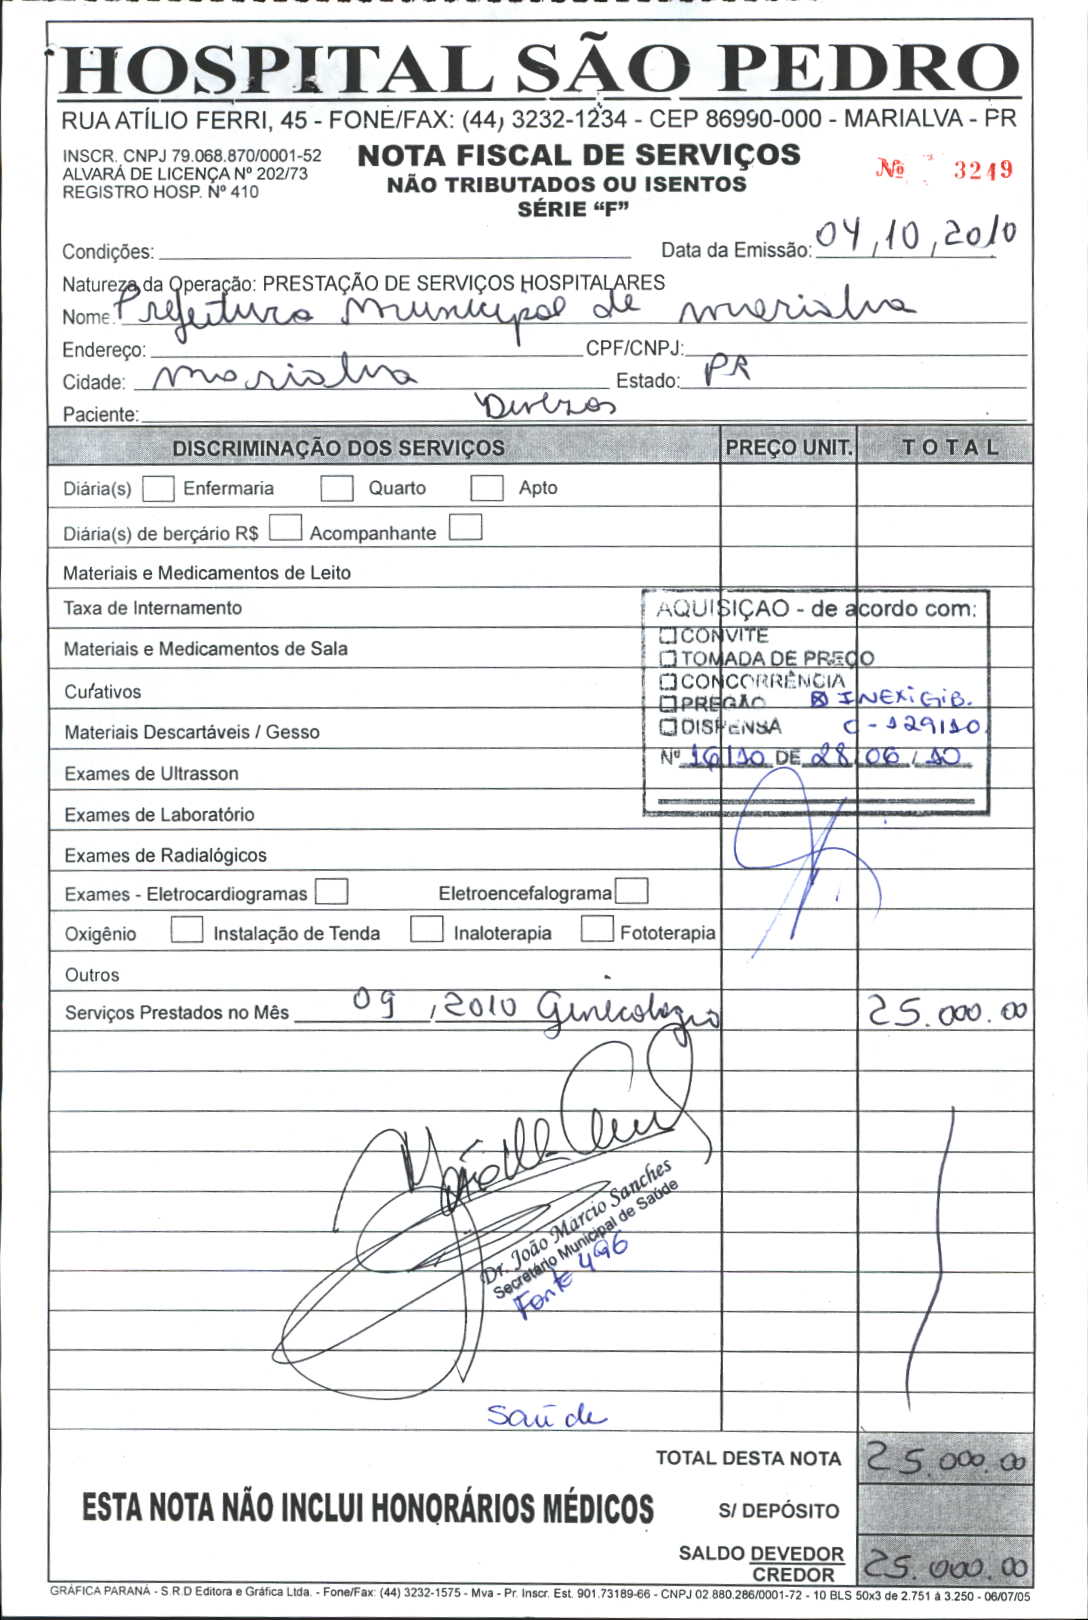 HOSPITAL SÃO PEDRO
RUA ATÍLIO FERRI, 45 - FONE/FAX: (44) 3232-1234 - CEP 86990-000 - MARIALVA - PR
INSCR. CNPJ 79.068.870/0001-52
ALVARÁ DE LICENÇA Nº 202/73
REGISTRO HOSP. Nº 410
NOTA FISCAL DE SERVIÇOS
NÃO TRIBUTADOS OU ISENTOS
SÉRIE “F”
Nº 3249
Condições:
Data da Emissão: 04, 10, 2010
Natureza da Operação: PRESTAÇÃO DE SERVIÇOS HOSPITALARES
Nome: Prefeitura Municipal de Marialva
Endereço: CPF/CNPJ:
Cidade: Marialva Estado: PR
Paciente: Diverzos
DISCRIMINAÇÃO DOS SERVIÇOS PREÇO UNIT. TOTAL
Diária(s) Enfermaria Quarto Apto
Diária(s) de berçário R$ Acompanhante
Materiais e Medicamentos de Leito
Taxa de Internamento
Materiais e Medicamentos de Sala
Curativos
Materiais Descartáveis / Gesso
Exames de Ultrasson
Exames de Laboratório
Exames de Radialógicos
Exames - Eletrocardiogramas Eletroencefalograma
Oxigênio Instalação de Tenda Inaloterapia Fototerapia
Outros
AQUISIÇAO - de acordo com:
CONVITE
TOMADA DE PREÇO
CONCORRÊNCIA
PREGÃO INEXIGIB.
DISPENSA C-129/10
Nº 16/10 DE 28/06/10
Serviços Prestados no Mês 09, 2010 Ginecologia 25.000.00
Dr. João Márcio Sanches
Secretário Municipal de Saúde
Fonte 496
Saúde
TOTAL DESTA NOTA 25.000.00
ESTA NOTA NÃO INCLUI HONORÁRIOS MÉDICOS
S/ DEPÓSITO
SALDO DEVEDOR
CREDOR 25.000.00
GRÁFICA PARANÁ - S.R.D Editora e Gráfica Ltda. - Fone/Fax: (44) 3232-1575 - Mva - Pr. Inscr. Est. 901.73189-66 - CNPJ 02.880.286/0001-72 - 10 BLS 50x3 de 2.751 à 3.250 - 06/07/05